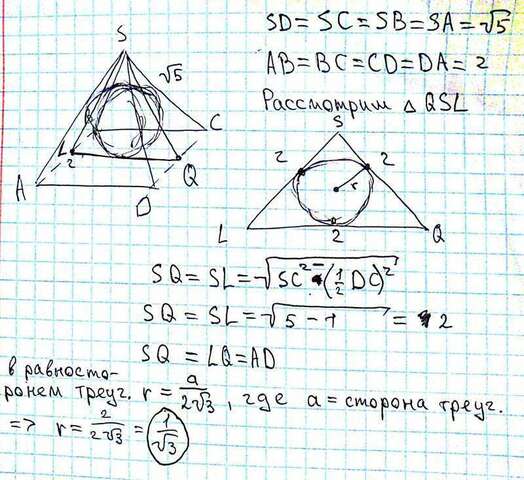 SD = SC = SB = SA = √5
AB = BC = CD = DA = 2
Рассмотрим △ QSL
S
√5
C
L
2
Q
A
D
S
2
2
r
L
2
Q
SQ = SL = √(SC² - (½ DC)²)
SQ = SL = √(5 - 1) = 2
SQ = LQ = AD
в равносто-
ронем треуг. r = a/(2√3), где a = сторона треуг.
=> r = 2/(2√3) = 1/√3